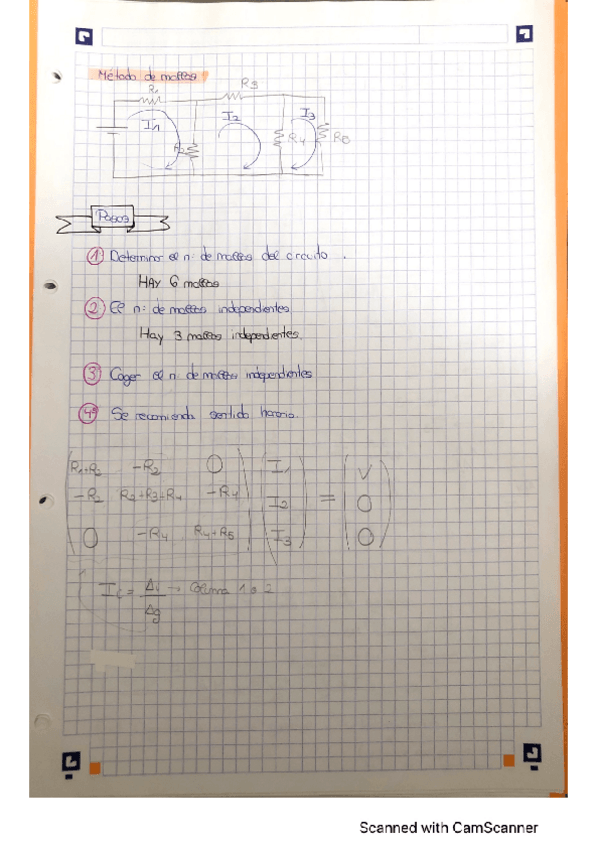 Método de mallas
R1 R3
I1 I2 I3
R2 R4 R5
Pasos
1º Determinar el nº de mallas del circuito.
HAY 6 mallas
2 El nº de mallas independientes
Hay 3 mallas independientes.
3 Coger el nº de mallas independientes
4º Se recomienda sentido horario.
R1+R2 -R2 0 I1 V
-R2 R2+R3+R4 -R4 I2 = 0
0 -R4 R4+R5 I3 0
Ii = Δi → Columna 1 o 2
Δg
Scanned with CamScanner